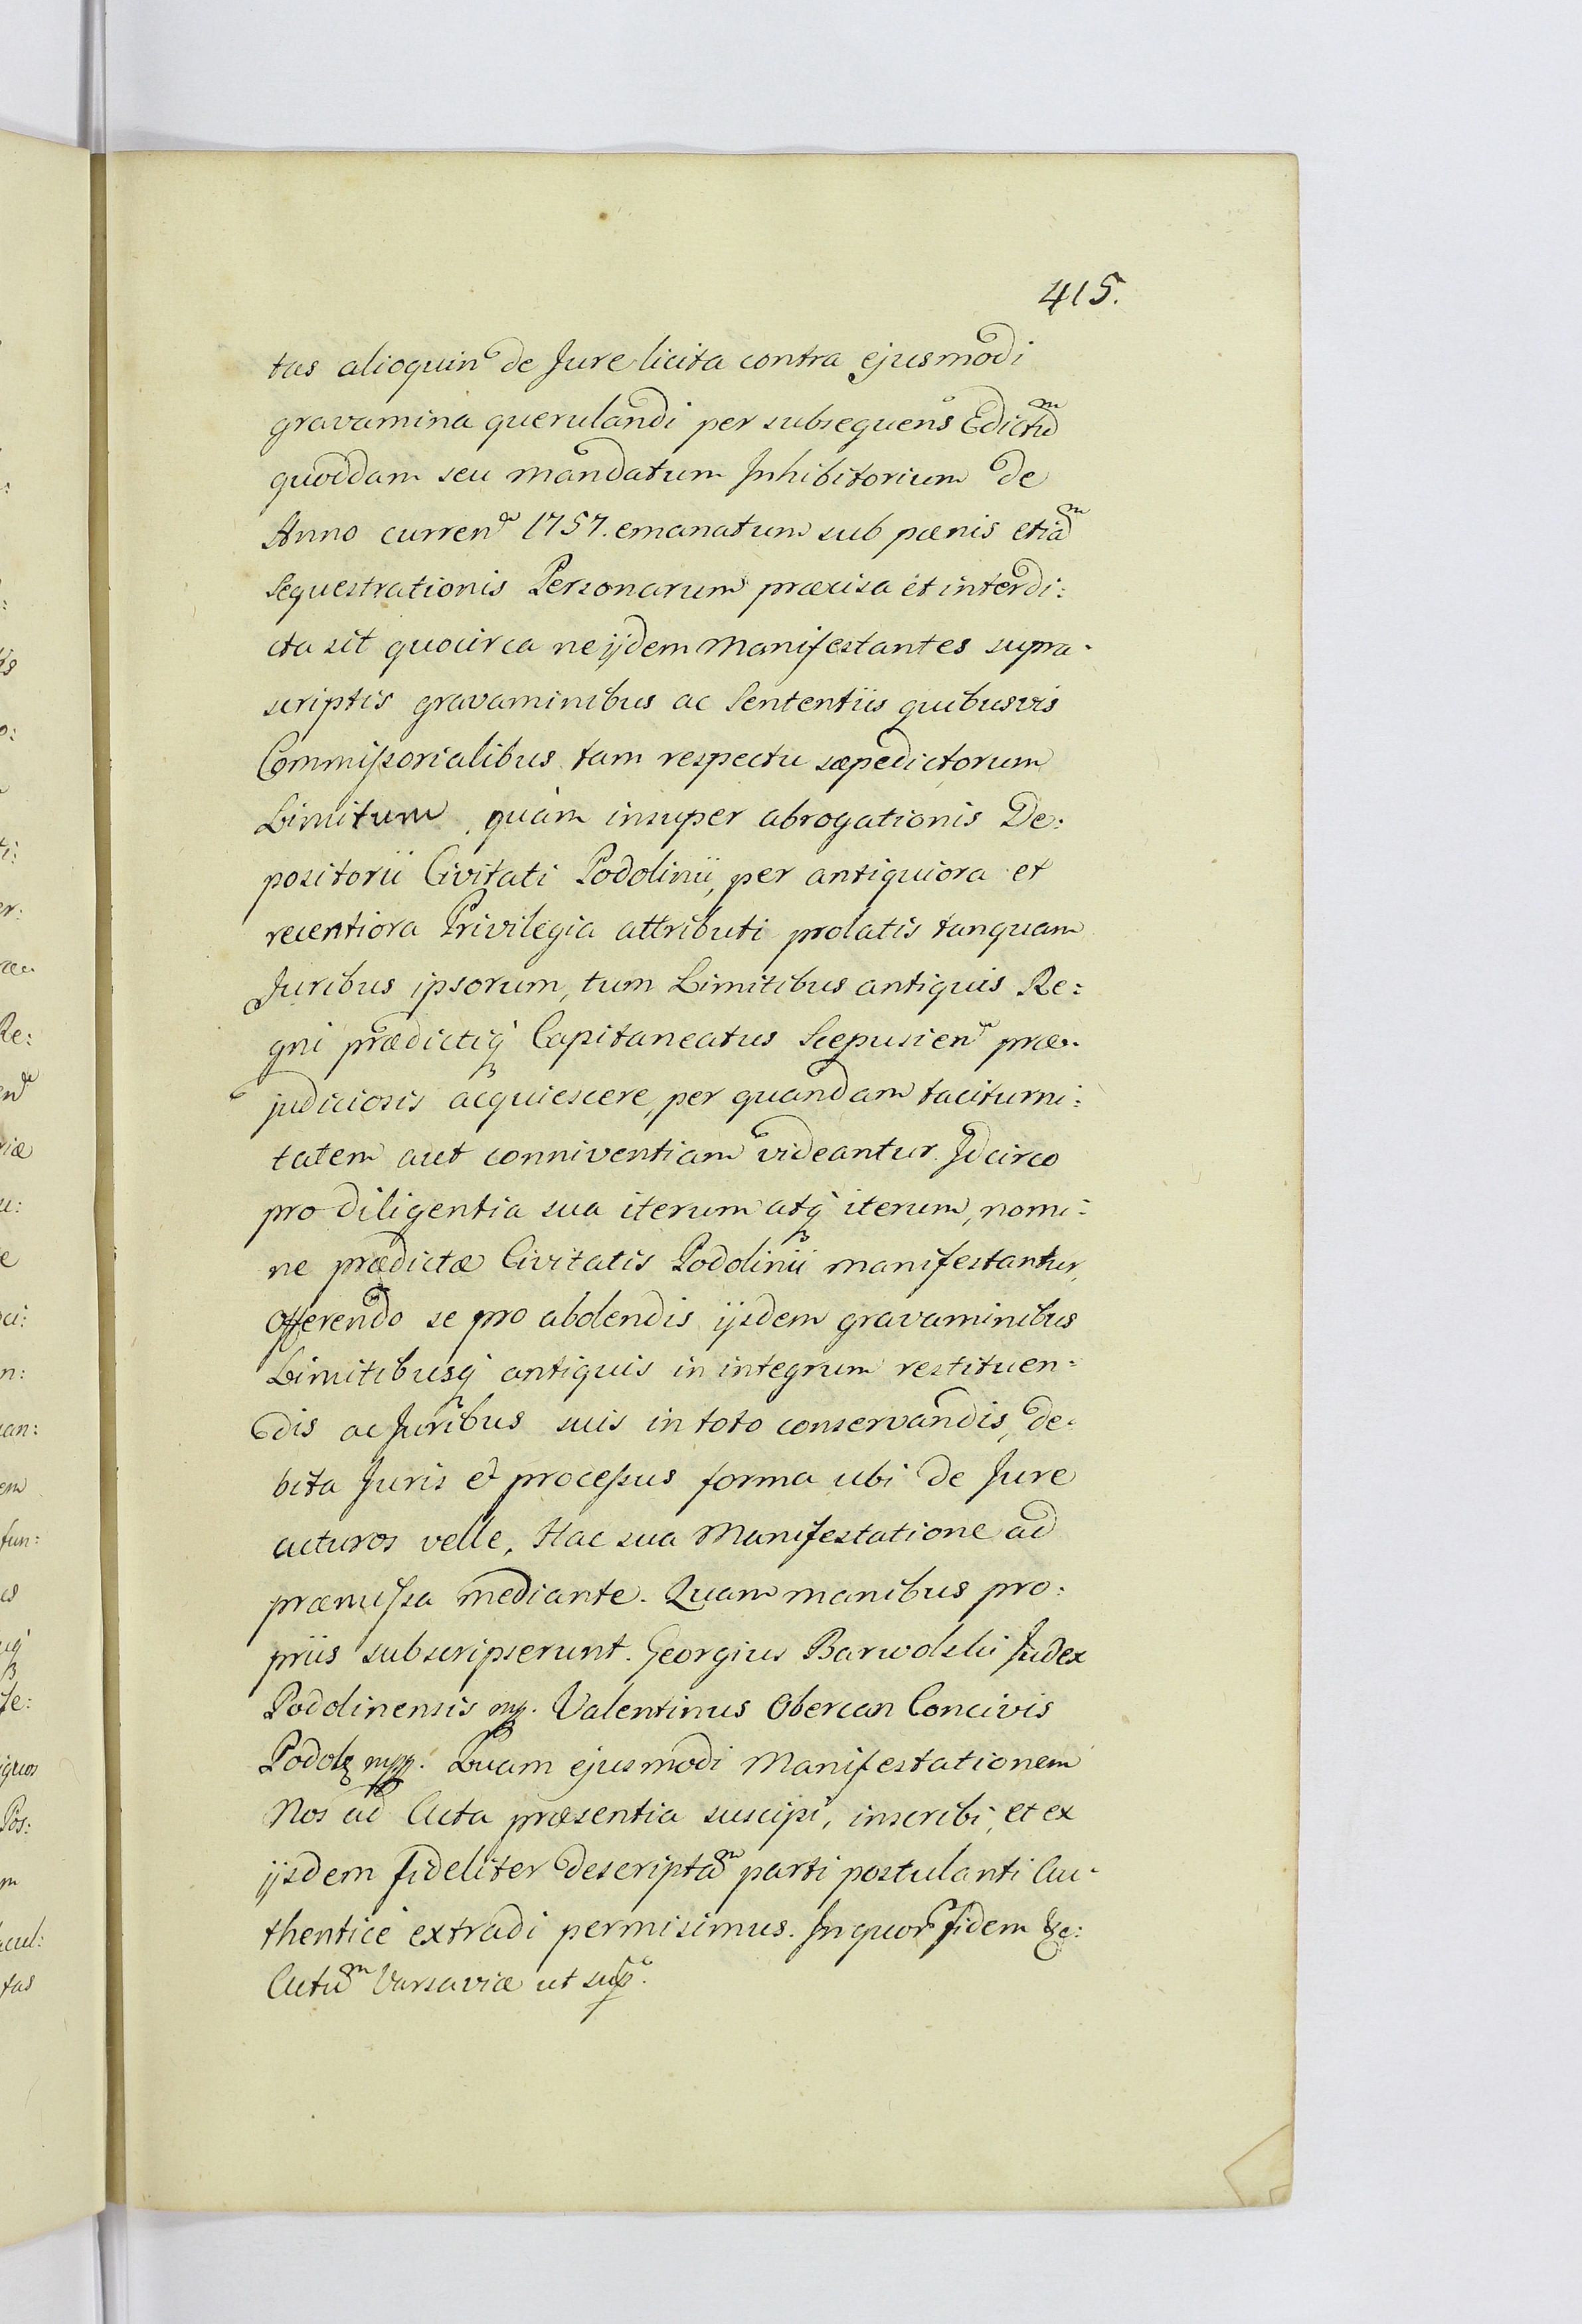 415.
tas alioquin de Jure licita contra ejusmodi
gravamina querulandi per subsequens Edictu͂m
quoddam seu mandatum Inhibitorium de
Anno curren͂ 1757. emanatum sub pœnis etia͂m
Sequestrationis Personarum præcisa et interdi:
cta sit quocirca ne ijdem Manifestantes supra-
scriptis gravaminibus ac Sententiis quibusvis
Commissorialibus tam respectu sæpedictorum
Limitum, quàm insuper abrogationis De:
positorii Civitati Podolinii, per antiquiora et
recentiora Privilegia attributi prolatis tanquam
Juribus ipsorum, tum Limitibus antiquis Re:
gni prædictiq́ Capitaneatus Scepusien͂ præ-
judiciosis acquiescere, per quandam taciturni:
tatem aut conniventiam videantur. Idcirco
pro diligentia sua iterum atq́ iterum, nomi:
ne prædictæ Civitatis Podolinii manifestantur,
offerendo se pro abolendis ijsdem gravaminibus
Limitibusq́ antiquis in integrum restituen=
dis ac Juribus suis in toto conservandis, de:
bita Juris et processus forma ubi de Jure
acturos velle, Hac sua Manifestatione ad
præmissa mediante. Quam manibus pro:
priis subscripserunt. Georgius Barwolski Judex
Podolinensis mp. Valentinus Obercan Concivis
Podol; mpp. Quam ejusmodi Manifestationem
Nos ad Acta præsentia suscipi, inscribi, et ex
ijsdem fideliter descripta͂m parti postulanti Au-
thenticè extradi permisimus. In quor fidem &c:
Actu͂m Varsaviæ ut sup.